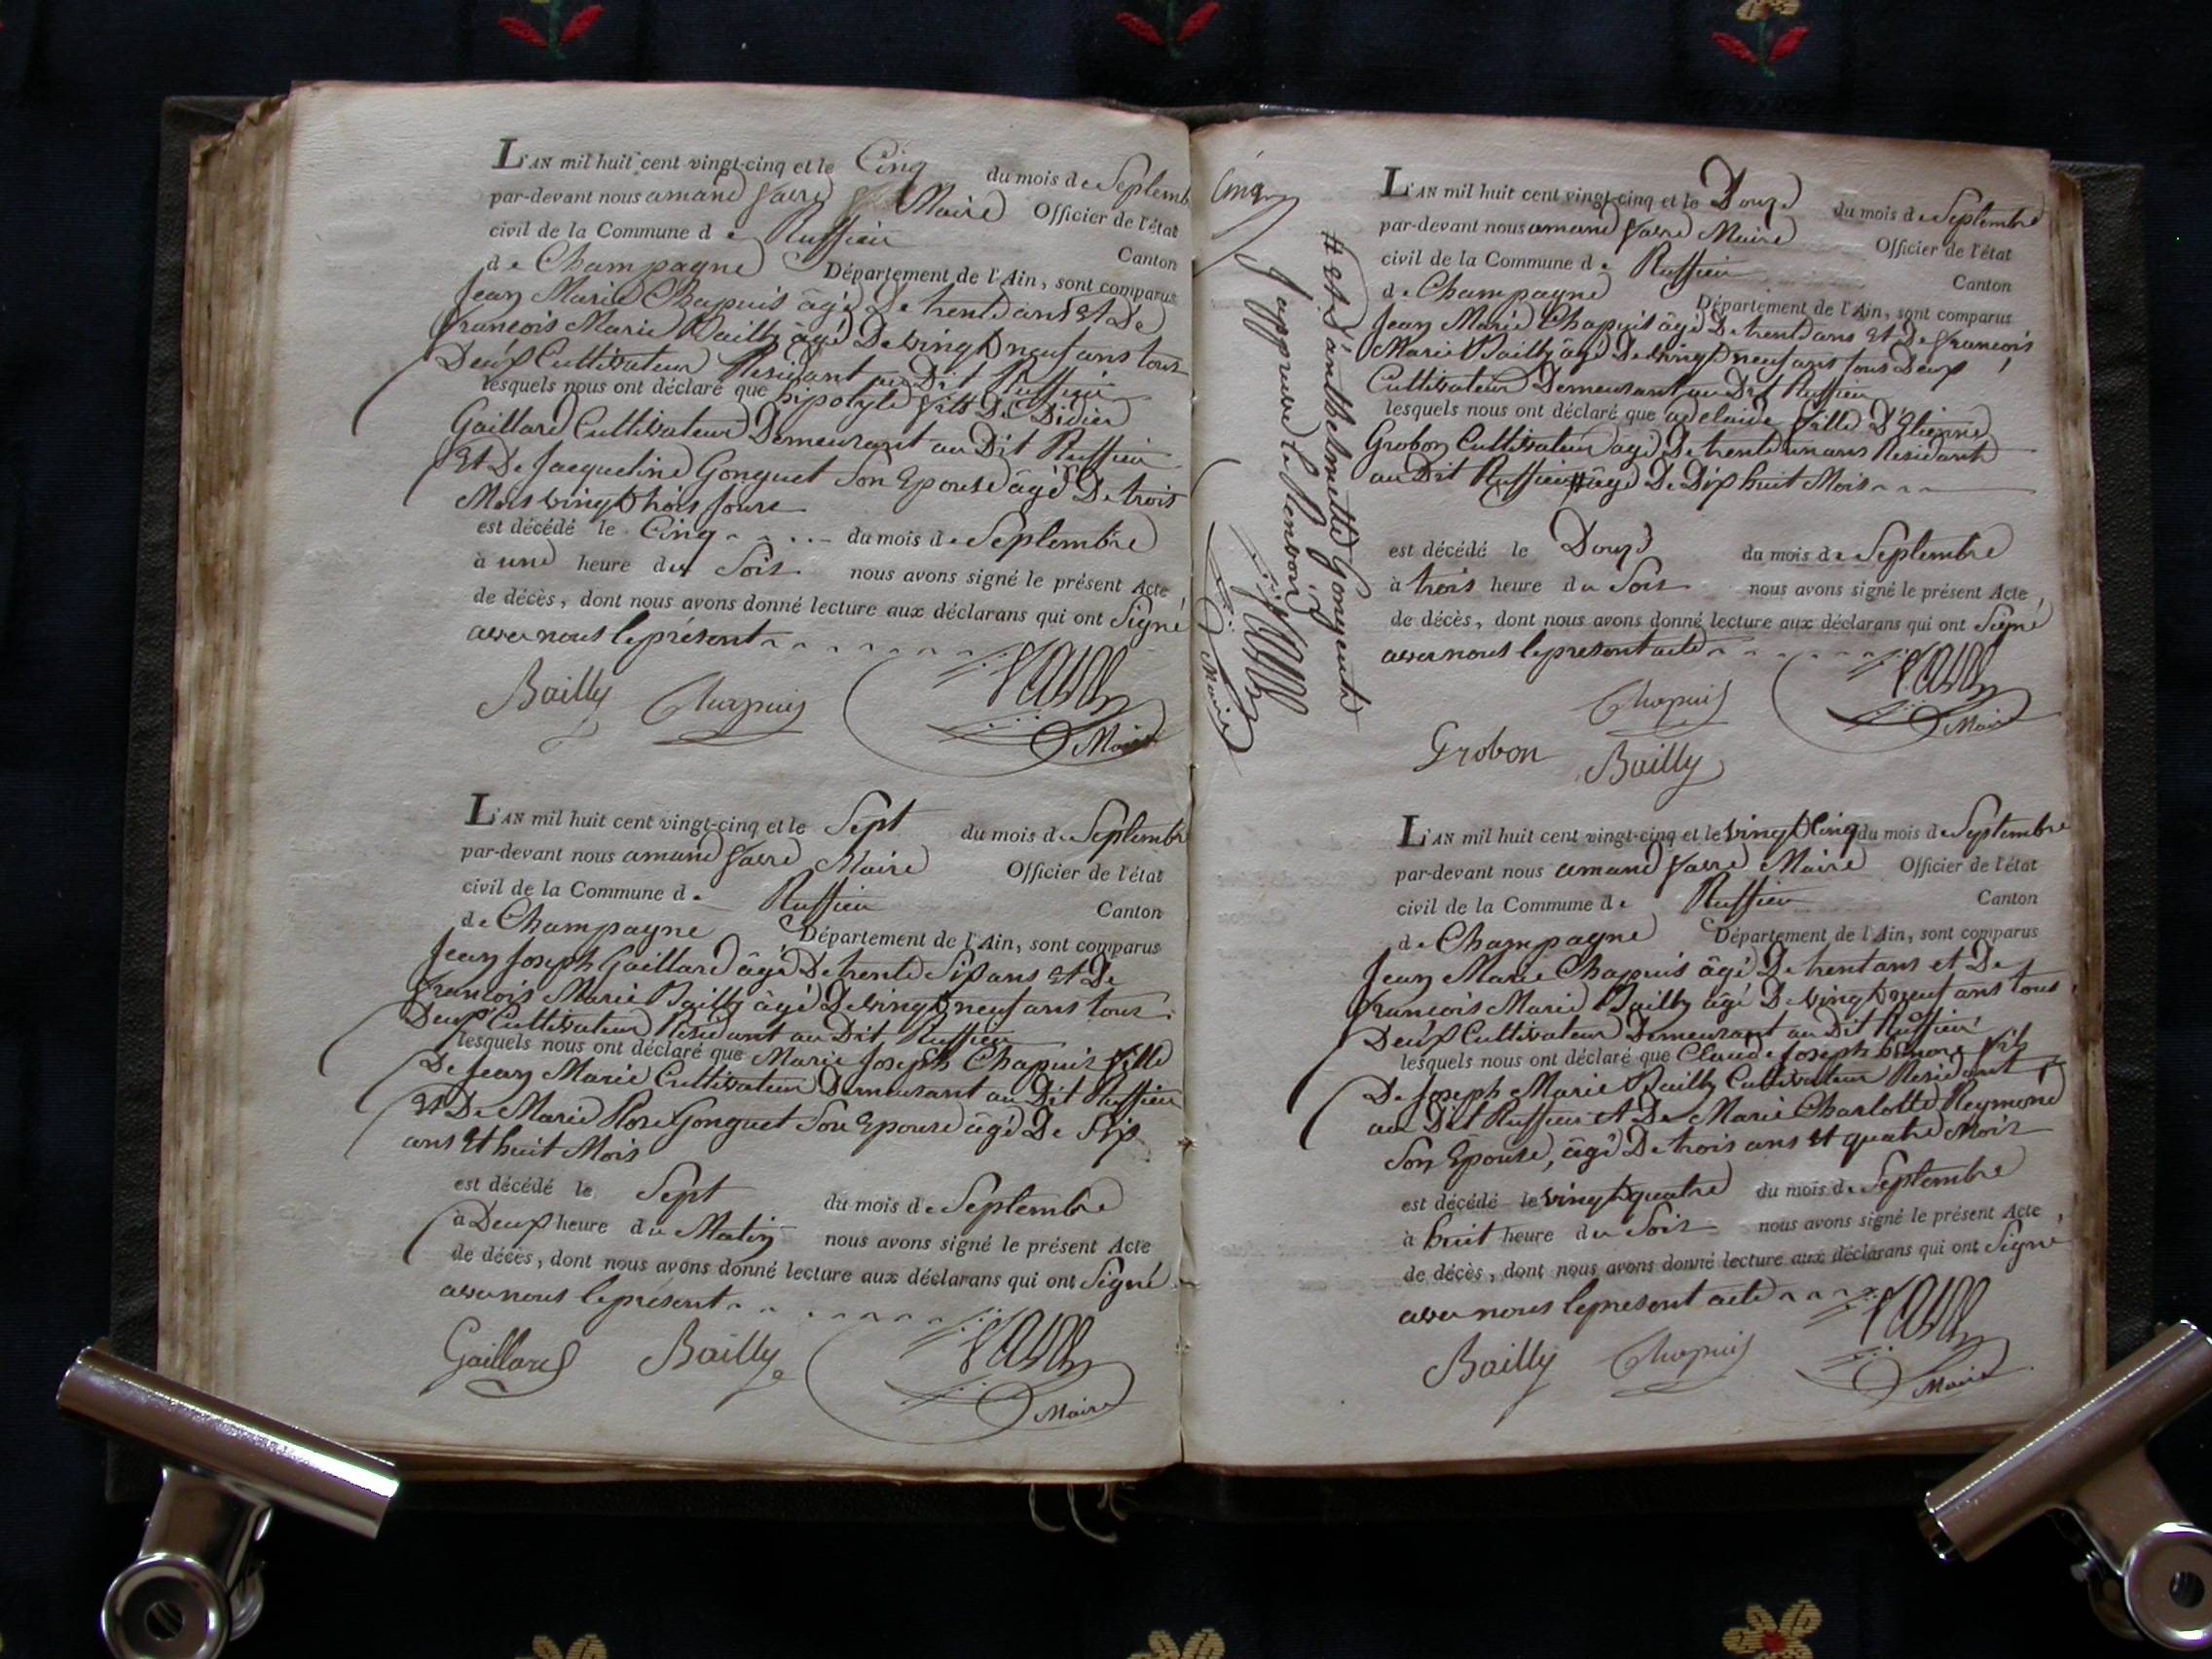 L'AN mil huit cent vingt-cinq et le Cinq du mois de Septemb
par-devant nous amand favre Maire Officier de l'état
civil de la Commune de Ruffieu Canton
de Champagne Département de l'Ain, sont comparus
Jean Marie Chapuis âgé De trente ans Et De
francois Marie Bailly âgé De vingt neuf ans tous
Deux Cultivateur Residant au Dit Ruffieu
lesquels nous ont déclaré que hipolyte fils De Didier
Gaillard Cultivateur Demeurant au Dit Ruffieu
Et De Jacqueline Gonguet Son Epouse âgé De trois
Mois vingt trois jours
est décédé le Cinq du mois de Septembre
à une heure du Soir nous avons signé le présent Acte
de décès, dont nous avons donné lecture aux déclarans qui ont Signé
avec nous le présent
Bailly Chapuis favre
Maire
L'AN mil huit cent vingt-cinq et le Sept du mois de Septembr
par-devant nous amand favre Maire Officier de l'état
civil de la Commune de Ruffieu Canton
de Champagne Département de l'Ain, sont comparus
Jean Joseph Gaillard âgé De trente Six ans Et De
francois Marie Bailly âgé De vingt neuf ans tous
Deux Cultivateur Residant au Dit Ruffieu
lesquels nous ont déclaré que Marie Joseph Chapuis fille
De Jean Marie Cultivateur Demeurant au Dit Ruffieu
Et De Marie Rose Gonguet Son Epouse âgé De Six
ans Et huit Mois
est décédé le Sept du mois de Septembre
à Deux heure du Matin nous avons signé le présent Acte
de décès, dont nous avons donné lecture aux déclarans qui ont Signé
avec nous le présent
Gaillard Bailly favre
Maire
Cinq
# Et D'anthelmette Gonguet
J'approuve le Renvoi
favre
Maire
L'AN mil huit cent vingt-cinq et le Douze du mois de Septembre
par-devant nous amand favre Maire Officier de l'état
civil de la Commune de Ruffieu Canton
de Champagne Département de l'Ain, sont comparus
Jean Marie Chapuis âgé De trent ans Et De francois
Marie Bailly âgé De vingt neuf ans tous Deux
Cultivateur Demeurant au Dit Ruffieu
lesquels nous ont déclaré que adelaide fille D'Etienne
Grobon Cultivateur agé De trente un ans Residant
au Dit Ruffieu # âgé De Dix huit Mois
est décédé le Douze du mois de Septembre
à trois heure du Soir nous avons signé le présent Acte,
de décès, dont nous avons donné lecture aux déclarans qui ont Signé
avec nous le present acte
Chapuis favre
Maire
Grobon Bailly
L'AN mil huit cent vingt-cinq et le vingt Cinq du mois de Septembre
par-devant nous amand favre Maire Officier de l'état
civil de la Commune de Ruffieu Canton
de Champagne Département de l'Ain, sont comparus
Jean Marie Chapuis âgé De trent ans et De
francois Marie Bailly âgé De vingt neuf ans tous
Deux Cultivateur Demeurant au Dit Ruffieu
lesquels nous ont déclaré que Claude Joseph fils
De Joseph Marie Bailly Cultivateur Residant
au Dit Ruffieu Et De Marie Charlotte Reymond
Son Epouse, âgé De trois ans Et quatre Mois
est décédé le vingt quatre du mois de Septembre
à huit heure du Soir nous avons signé le présent Acte,
de décès, dont nous avons donné lecture aux déclarans qui ont Signé
avec nous le present acte
Bailly Chapuis favre
Maire